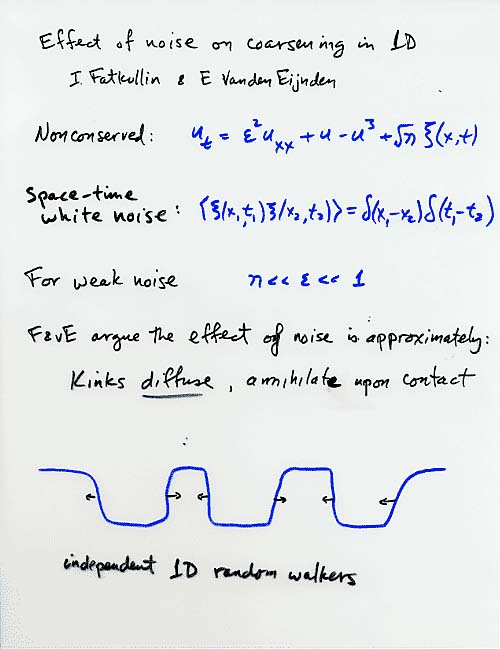 Effect of noise on coarsening in 1D
I. Fatkullin & E Vanden Eijnden
Nonconserved: u_t = ε² u_xx + u - u³ + √η ξ(x,t)
Space-time
white noise: ⟨ξ(x₁,t₁)ξ(x₂,t₂)⟩ = δ(x₁-x₂)δ(t₁-t₂)
For weak noise η << ε << 1
F&vE argue the effect of noise is approximately:
Kinks diffuse, annihilate upon contact
independent 1D random walkers